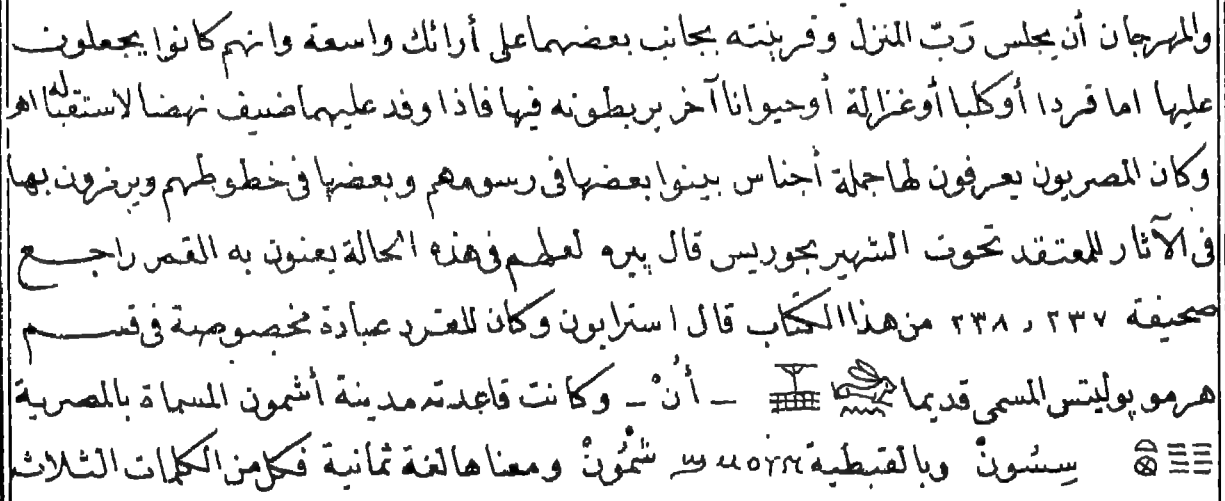 والمهرجان أن يجلس رَبّ المنزل وقرينته بجانب بعضهما على أرائك واسعة وانهم كانوا يجعلون
عليها اما قردا أوكلبا أوغزالة أوحيوانا آخر يربطونه فيها فاذا وفد عليهما ضيف نهضا لاستقباله اهـ
وكان المصريون يعرفون لها جملة أجناس بينوا بعضها فى رسومهم وبعضها فى خطوطهم ويرمزون بها
فى الآثار للمعتقد تحوت الشهير بجوريس قال بيره لعلهم فى هذه الحالة يعنون به القمر راجـــع
صحيفة ٢٣٧ و ٢٣٨ من هذا الكتاب قال استرابون وكان للقرد عبادة مخصوصة فى قســـم
هرموپوليتس المسمى قديما 𓃹𓈖 𓈈 ـ أُنْ ـ وكانت قاعدته مدينة أشمون المسماة بالمصرية
𓐁 𓏏𓊖 سِسُونْ وبالقبطية ϣⲙⲟⲩⲛ شْمُونْ ومعناها لغة ثمانية فكل من الكلمات الثلاث